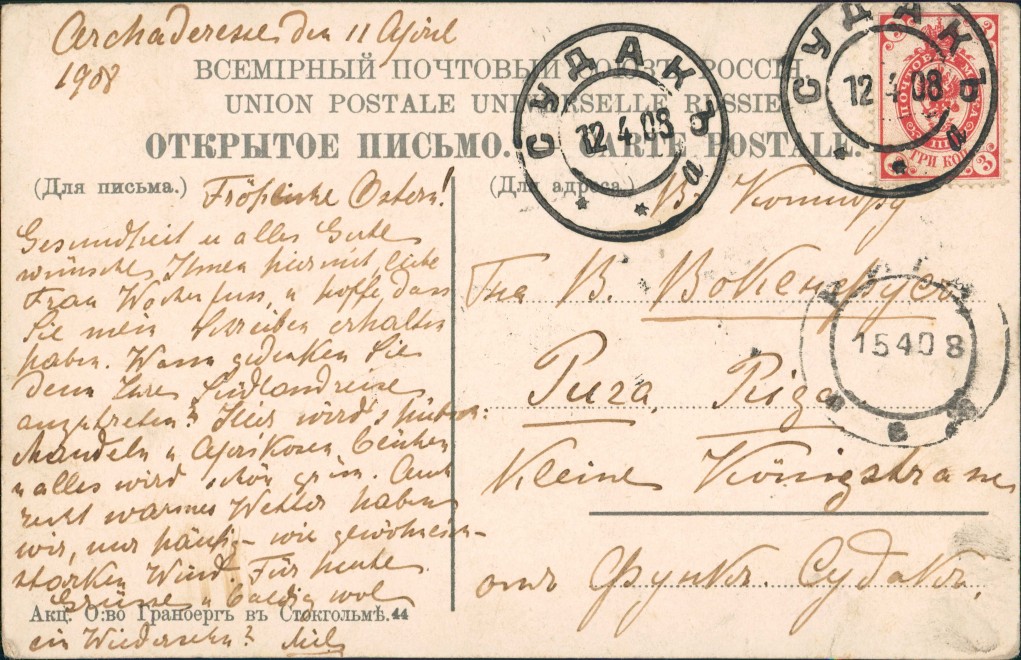 den 11 April
1908
ВСЕМІРНЫЙ ПОЧТОВЫЙ СОЮЗЪ. РОССІЯ
UNION POSTALE UNIVERSELLE RUSSIE
ОТКРЫТОЕ ПИСЬМО. CARTE POSTALE.
СУДАКЪ
12 4 08
а
СУДАКЪ
12 4 08
а
ПОЧТОВАЯ МАРКА
ТРИ КОП.
3 3
(Для письма.)
Fröhliche Ostern!
Gesundheit u alles Gute
wünsche Ihnen hiermit, liebe
Frau Wockenfuss, u hoffe, dass
Sie mein Schreiben erhalten
haben. Wann gedenken Sie
denn Ihre Südlandreise
anzutreten? Hier wird's hübsch:
Mandeln u Aprikosen blühen
u alles wird schön grün. Auch
recht warmes Wetter haben
wir, nur häufig – wie gewöhnlich –
starken Wind. Für heute
Grüsse u baldig wol
ein Wiedersehn?
Акц. О:во Гранбергъ въ Стокгольмѣ. 44
(Для адреса.)
В.
Гна В. Вокенфусъ
Рига, Riga
Kleine Königstrasse
отъ Функъ. Судакъ.
15 4 08